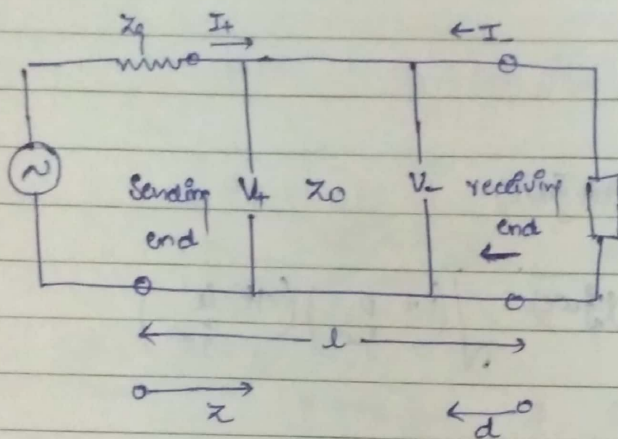 Zg I+ ← I-
~
Sending V+ Z0 V- receiving
end end
l
z d